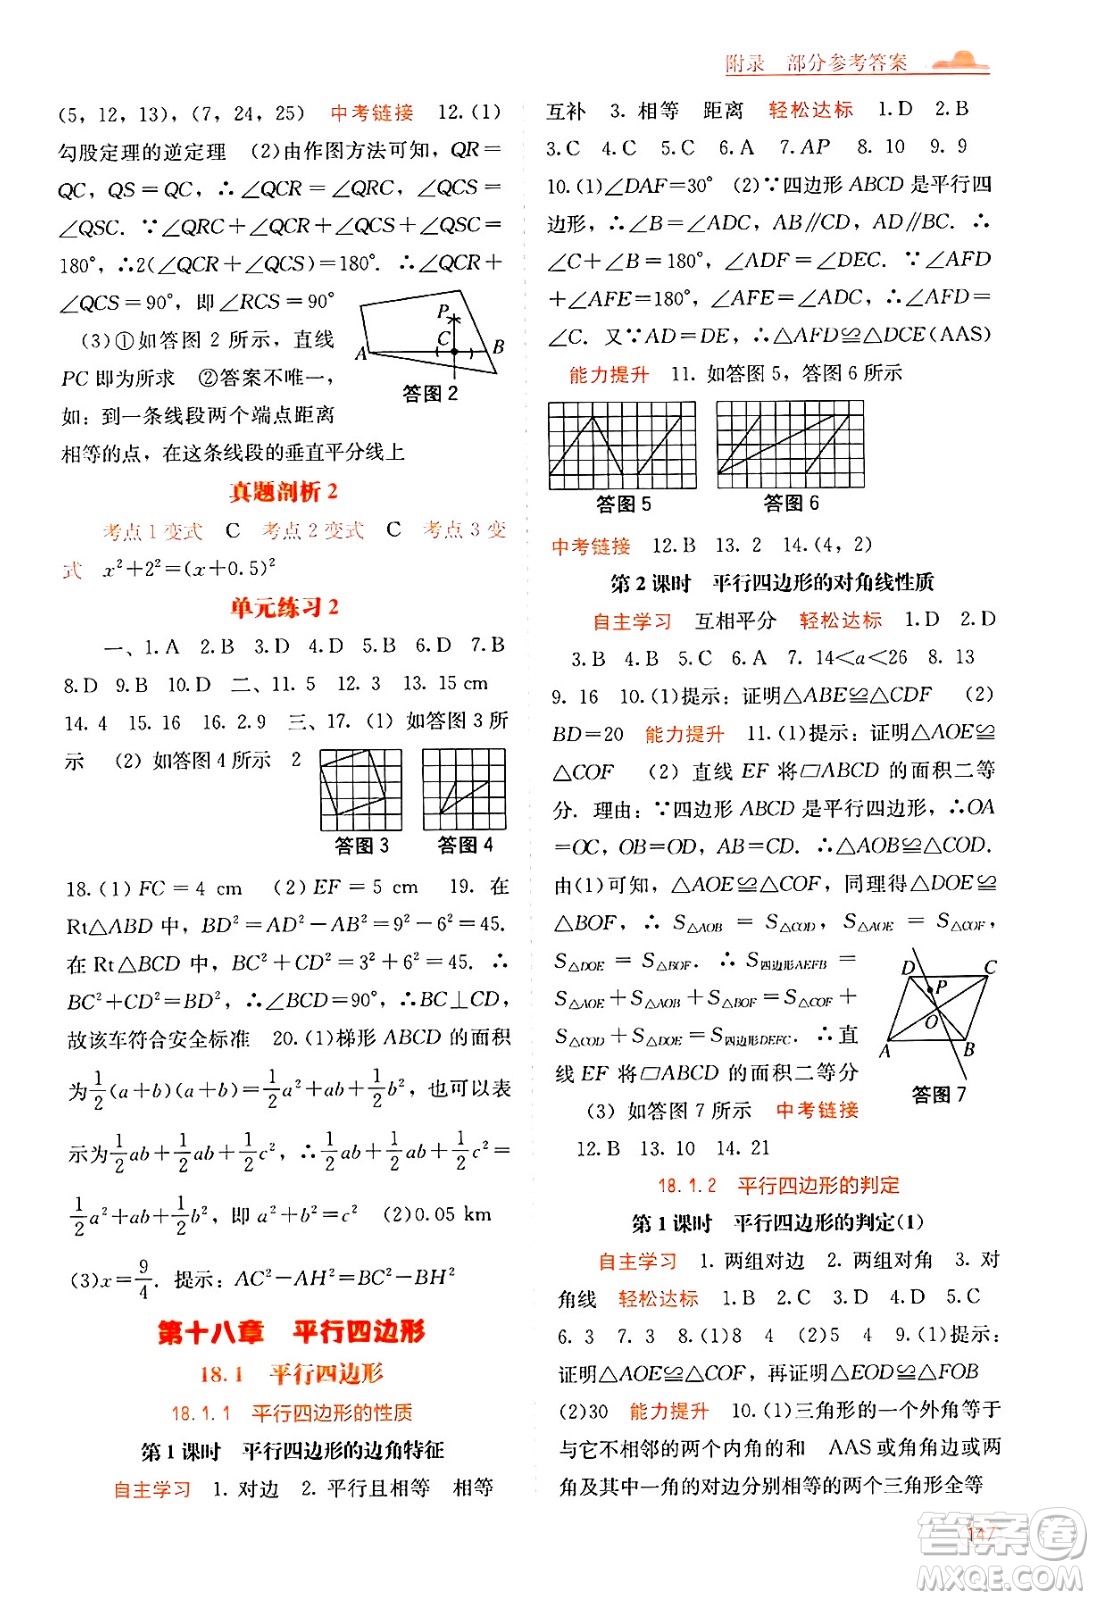 附录 部分参考答案
(5, 12, 13), (7, 24, 25) 中考链接 12.(1)
勾股定理的逆定理 (2)由作图方法可知, QR=
QC, QS=QC, ∴∠QCR=∠QRC, ∠QCS=
∠QSC. ∵∠QRC+∠QCR+∠QCS+∠QSC=
180°, ∴2(∠QCR+∠QCS)=180°. ∴∠QCR+
∠QCS=90°, 即∠RCS=90°
(3)①如答图 2 所示, 直线
PC 即为所求 ②答案不唯一,
如: 到一条线段两个端点距离
相等的点, 在这条线段的垂直平分线上
P
C
A
B
答图 2
真题剖析 2
考点 1 变式 C 考点 2 变式 C 考点 3 变
式 x²+2²=(x+0.5)²
单元练习 2
一、1.A 2.B 3.D 4.D 5.B 6.D 7.B
8.D 9.B 10.D 二、11.5 12.3 13.15 cm
14.4 15.16 16.2.9 三、17.(1) 如答图 3 所
示 (2) 如答图 4 所示 2
答图 3
答图 4
18.(1) FC=4 cm (2) EF=5 cm 19. 在
Rt△ABD 中, BD²=AD²-AB²=9²-6²=45.
在 Rt△BCD 中, BC²+CD²=3²+6²=45. ∴
BC²+CD²=BD². ∴∠BCD=90°, ∴BC⊥CD,
故该车符合安全标准 20.(1)梯形 ABCD 的面积
为1/2(a+b)(a+b)=1/2a²+ab+1/2b², 也可以表
示为1/2ab+1/2ab+1/2c², ∴1/2ab+1/2ab+1/2c²=
1/2a²+ab+1/2b², 即 a²+b²=c² (2)0.05 km
(3)x=9/4. 提示: AC²-AH²=BC²-BH²
第十八章 平行四边形
18.1 平行四边形
18.1.1 平行四边形的性质
第 1 课时 平行四边形的边角特征
自主学习 1. 对边 2. 平行且相等 相等
互补 3. 相等 距离 轻松达标 1.D 2.B
3.C 4.C 5.C 6.A 7.AP 8.10 9.9
10.(1)∠DAF=30° (2)∵四边形 ABCD 是平行四
边形, ∴∠B=∠ADC, AB∥CD, AD∥BC. ∴
∠C+∠B=180°, ∠ADF=∠DEC. ∵∠AFD
+∠AFE=180°, ∠AFE=∠B, ∴∠AFD=
∠C. 又∵AD=DE, ∴△AFD≌△DCE(AAS)
能力提升 11. 如答图 5, 答图 6 所示
答图 5
答图 6
中考链接 12.B 13.2 14.(4, 2)
第 2 课时 平行四边形的对角线性质
自主学习 互相平分 轻松达标 1.D 2.D
3.B 4.B 5.C 6.A 7.14<a<26 8.13
9.16 10.(1)提示: 证明△ABE≌△CDF (2)
BD=20 能力提升 11.(1)提示: 证明△AOE≌
△COF (2) 直线 EF 将▱ABCD 的面积二等
分. 理由: ∵四边形 ABCD 是平行四边形, ∴OA
=OC, OB=OD, AB=CD. ∴△AOB≌△COD.
由(1)可知, △AOE≌△COF, 同理得△DOE≌
△BOF, ∴ S△AOB = S△COD, S△AOE = S△COF,
S△DOE = S△BOF. ∴ S四边形AEFB =
S△AOE+S△AOB+S△BOF=S△COF+
S△COD+S△DOE=S四边形DEFC. ∴直
线 EF 将▱ABCD 的面积二等分
D
C
P
O
A
B
答图 7
(3) 如答图 7 所示 中考链接
12.B 13.10 14.21
18.1.2 平行四边形的判定
第 1 课时 平行四边形的判定(1)
自主学习 1. 两组对边 2. 两组对角 3. 对
角线 轻松达标 1.B 2.C 3.D 4.D 5.C
6.3 7.3 8.(1)8 4 (2)5 4 9.(1)提示:
证明△AOE≌△COF 提示: 证明△EOD≌△FOB
(2)30 能力提升 10.(1)三角形的一个外角等于
与它不相邻的两个内角的和 AAS或角角边或两
角及其中一角的对边分别相等的两个三角形全等
147
答案圈
MXQE.COM